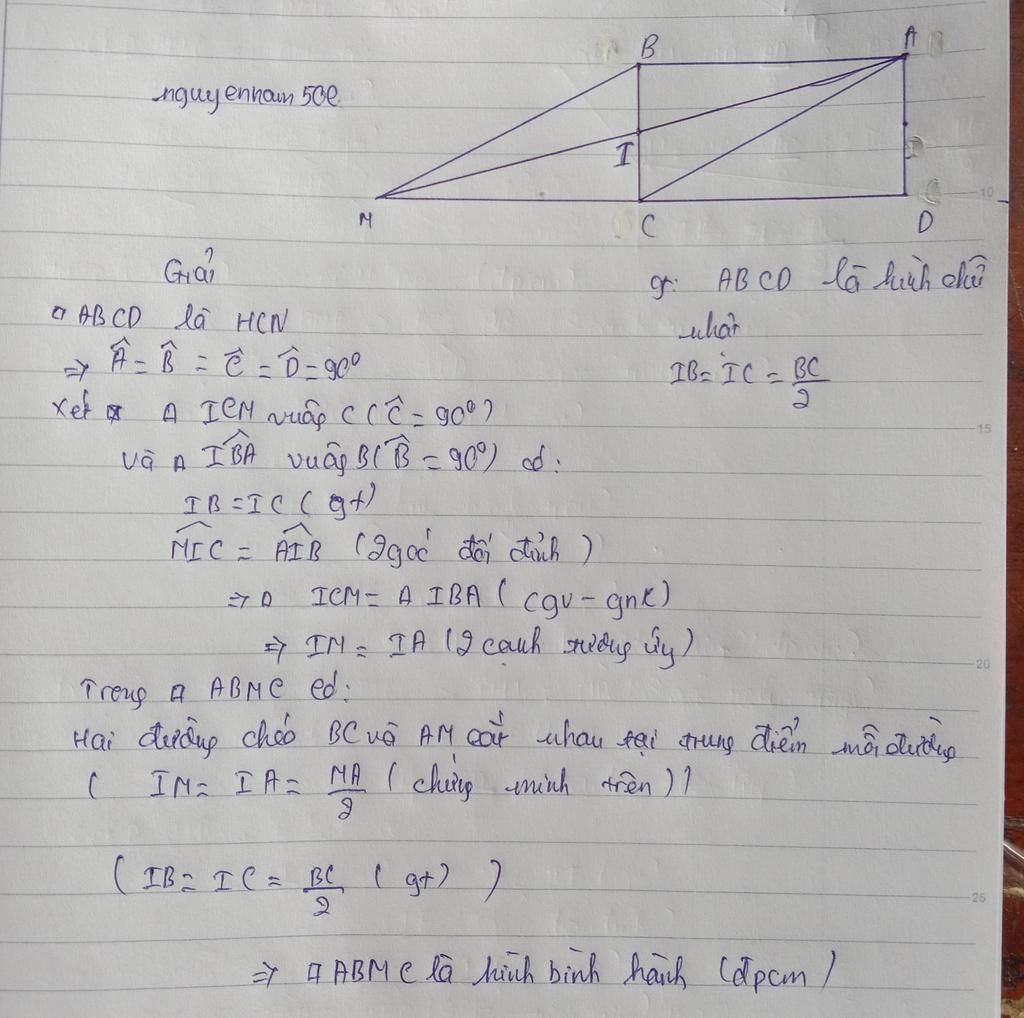 B
A
nguyenham50e
I
M
C
D
Giải
gt: ABCD là hình chữ
nhât
IB = IC = BC/2
▱ ABCD là HCN
⇒ Â = B̂ = Ĉ = D̂ = 90°
Xét Δ ICM vuông C (Ĉ = 90°)
và Δ IBA vuông B (B̂ = 90°) có:
IB = IC (gt)
MIC = AIB (2 góc đối đỉnh)
⇒ Δ ICM = Δ IBA (cgv - gnk)
⇒ IM = IA (2 cạnh tương ứng)
Trong □ ABMC có:
Hai đường chéo BC và AM cắt nhau tại trung điểm mỗi đường
( IM = IA = MA/2 (chứng minh trên))
( IB = IC = BC/2 (gt) )
⇒ □ ABMC là hình bình hành (đpcm)
10
15
20
25